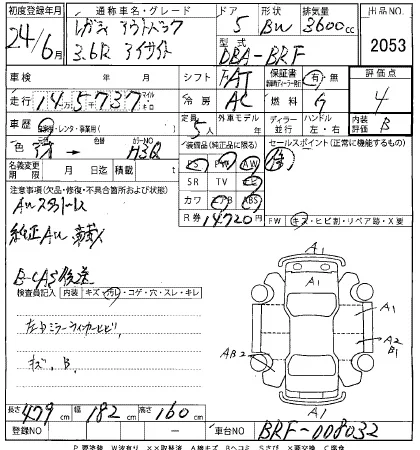 初度登録年月 通称車名・グレード ドア 形状 排気量 出品NO
24/6月 レガシィ アウトバック 3.6R アイサイト 5 BW 3600cc 2053
型式
DBA-BRF
車検 年 月 シフト FAT 保証書 有・無 評価点
走行 14万5千737 マイル キロ 冷房 AC 燃料 ガ 4
車歴 自家用・レンタ・事業用( ) 定員 5人 外車モデル 年 ディーラー 並行 ハンドル 左・右 内装評価 B
色 色替 カラーNO H3Q 装備品(純正品に限る) セールスポイント(正常に機能するもの)
名義変更期限 月 日迄 積載 t PS PW AW
SR TV
カワ ABS
R券 14720円
注意事項(欠品・修復・不具合箇所および状態)
Awスタッドレス
純正Aw 積載
B-CAS後送
FW キズ・ヒビ割・リペア跡・X要
検査員記入 内装 キズ・汚レ・コゲ・穴・スレ・キレ
左ドアミラーウィンカーヒビ
キズ.B.
A1
A1
A1
A2
B1
AB2
A1
A1
長さ 479cm 幅 182cm 高さ 160cm
登録NO 車台NO BRF-008032
P要塗装 W波有り XX取替済 A線キズ Bヘコミ Sさび X要交換 C腐食